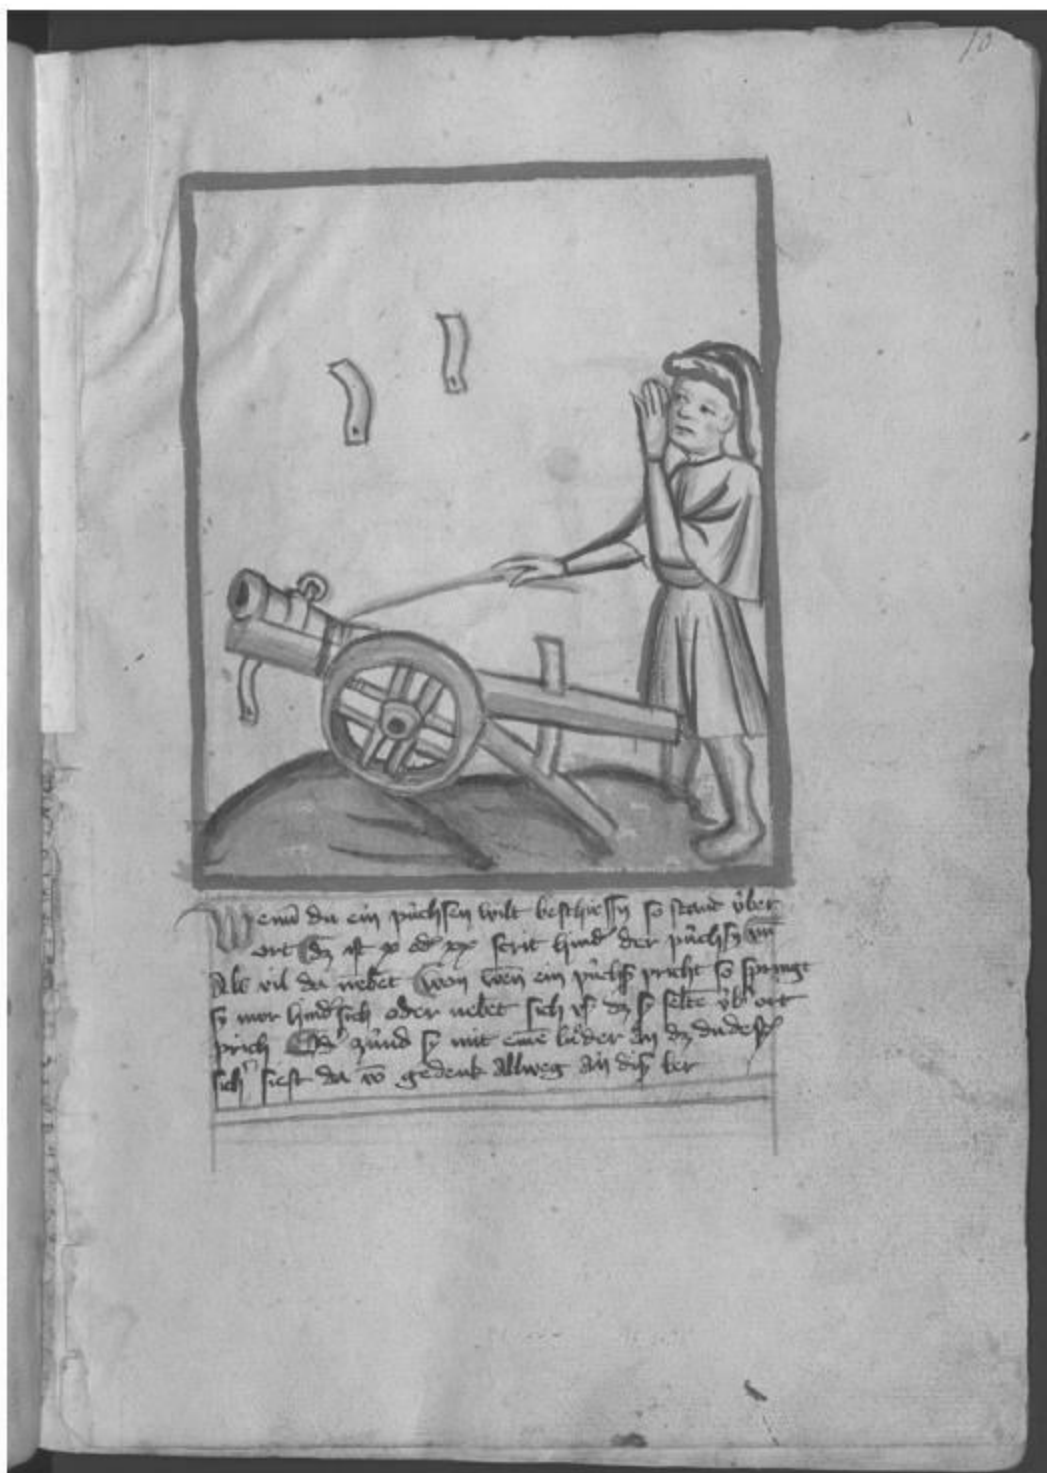 10
Wenn du ein püchsen wilt beschiessen so stand über
ort Dz ist x od' xx scrit hind' der püchsen vn̄
Als vil da nebēt Won wen̄ ein püchs pricht so springt
sy mer hind' sich oder nebēt sich vs dz sy seltē üb' ort
prich Od' zünd sy mit eine luder an dz du
sich' siest da vō gedenk Allweg an dis ler